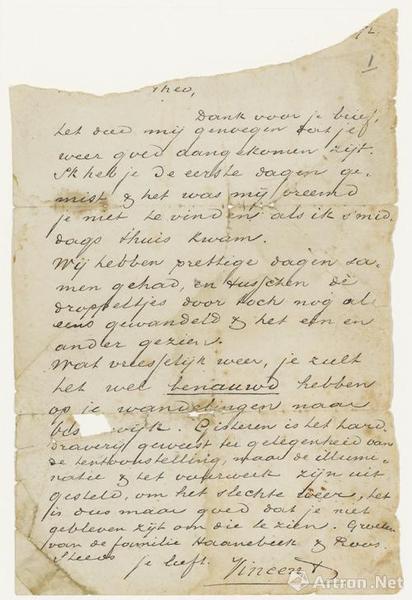 72
1
Theo,
Dank voor je brief,
het deed mij genoegen dat je
weer goed aangekomen zijt.
Ik heb je de eerste dagen ge-
mist & het was mij vreemd
je niet te vinden als ik 's mid-
dags thuis kwam.
Wij hebben prettige dagen sa-
men gehad, en tusschen de
droppeltjes door toch nog al
eens gewandeld & het een en
ander gezien.
Wat vreesselijk weer, je zult
het wel benauwd hebben
op je wandelingen naar
wijk. Gisteren is het hard-
draverij geweest ter gelegenheid van
de tentoonstelling, maar de illumi-
natie & het vuurwerk zijn uit
gesteld, om het slechte weer, het
is dus maar goed dat je niet
gebleven zijt om die te zien. Groeten
van de familie Haanebeek & Roos.
Steeds
je liefh. Vincent
Artron.Net